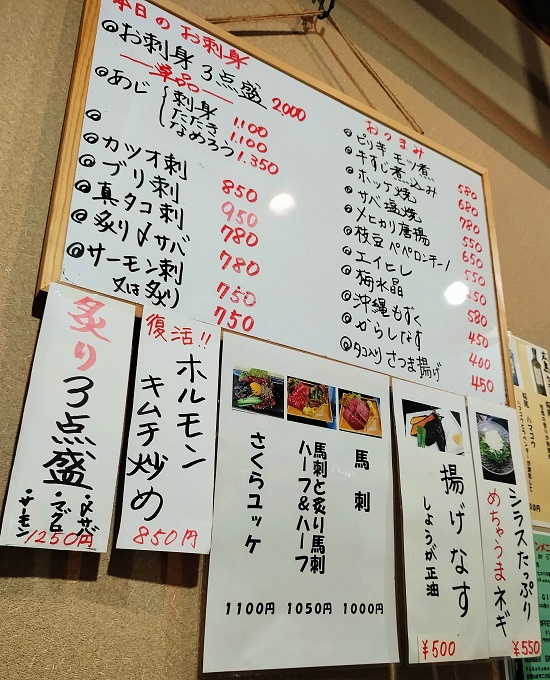 本日のお刺身
◎お刺身3点盛 2000
―単品―
◎あじ 刺身 1100
たたき 1.100
なめろう 1.350
◎カツオ刺 850
◎ブリ刺 950
◎真タコ刺 780
◎炙り〆サバ 780
◎サーモン刺 750
又は炙り 750
おつまみ
◎ピリ辛モツ煮 580
◎牛すじ煮込み 680
◎ホッケ焼 780
◎サバ塩焼 550
◎メヒカリ唐揚 650
◎枝豆ペペロンチーノ 550
◎エイヒレ
◎梅水晶 580
◎沖縄もずく 450
◎からしなす 400
◎タコ入りさつま揚げ 450
炙り3点盛
・〆サバ
・サーモン
1250円
復活!!
ホルモン
キムチ炒め
850円
馬刺
1000円
馬刺と炙り馬刺
ハーフ&ハーフ
1050円
さくらユッケ
1100円
揚げなす
しょうが正油
¥500
シラスたっぷり
めちゃうまネギ
¥550